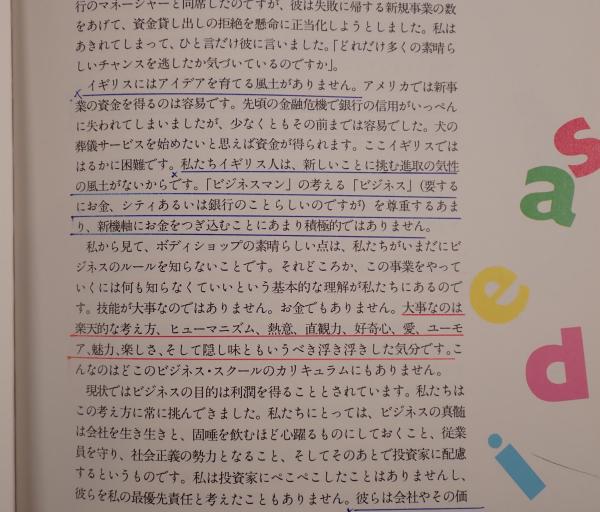 行のマネージャーと同席したのですが、彼は失敗に帰する新規事業の数
をあげて、資金貸し出しの拒絶を懸命に正当化しようとしました。私は
あきれてしまって、ひと言だけ彼に言いました。「どれだけ多くの素晴ら
しいチャンスを逃したか気づいているのですか」。
イギリスにはアイデアを育てる風土がありません。アメリカでは新事
業の資金を得るのは容易です。先頃の金融危機で銀行の信用がいっぺん
に失われてしまいましたが、少なくともその前までは容易でした。犬の
葬儀サービスを始めたいと思えば資金が得られます。ここイギリスでは
はるかに困難です。私たちイギリス人は、新しいことに挑む進取の気性
の風土がないからです。「ビジネスマン」の考える「ビジネス」(要する
にお金、シティあるいは銀行のことらしいのですが)を尊重するあま
り、新機軸にお金をつぎ込むことにあまり積極的ではありません。
私から見て、ボディショップの素晴らしい点は、私たちがいまだにビ
ジネスのルールを知らないことです。それどころか、この事業をやって
いくには何も知らなくていいという基本的な理解が私たちにあるので
す。技能が大事なのではありません。お金でもありません。大事なのは
楽天的な考え方、ヒューマニズム、熱意、直観力、好奇心、愛、ユーモ
ア、魅力、楽しさ、そして隠し味ともいうべき浮き浮きした気分です。こ
んなのはどこのビジネス・スクールのカリキュラムにもありません。
現状ではビジネスの目的は利潤を得ることとされています。私たちは
この考え方に常に挑んできました。私たちにとっては、ビジネスの真髄
は会社を生き生きと、固唾を飲むほど心躍るものにしておくこと、従業
員を守り、社会正義の勢力となること、そしてそのあとで投資家に配慮
するというものです。私は投資家にぺこぺこしたことはありませんし、
彼らを私の最優先責任と考えたこともありません。彼らは会社やその価
s
a
e
d
i